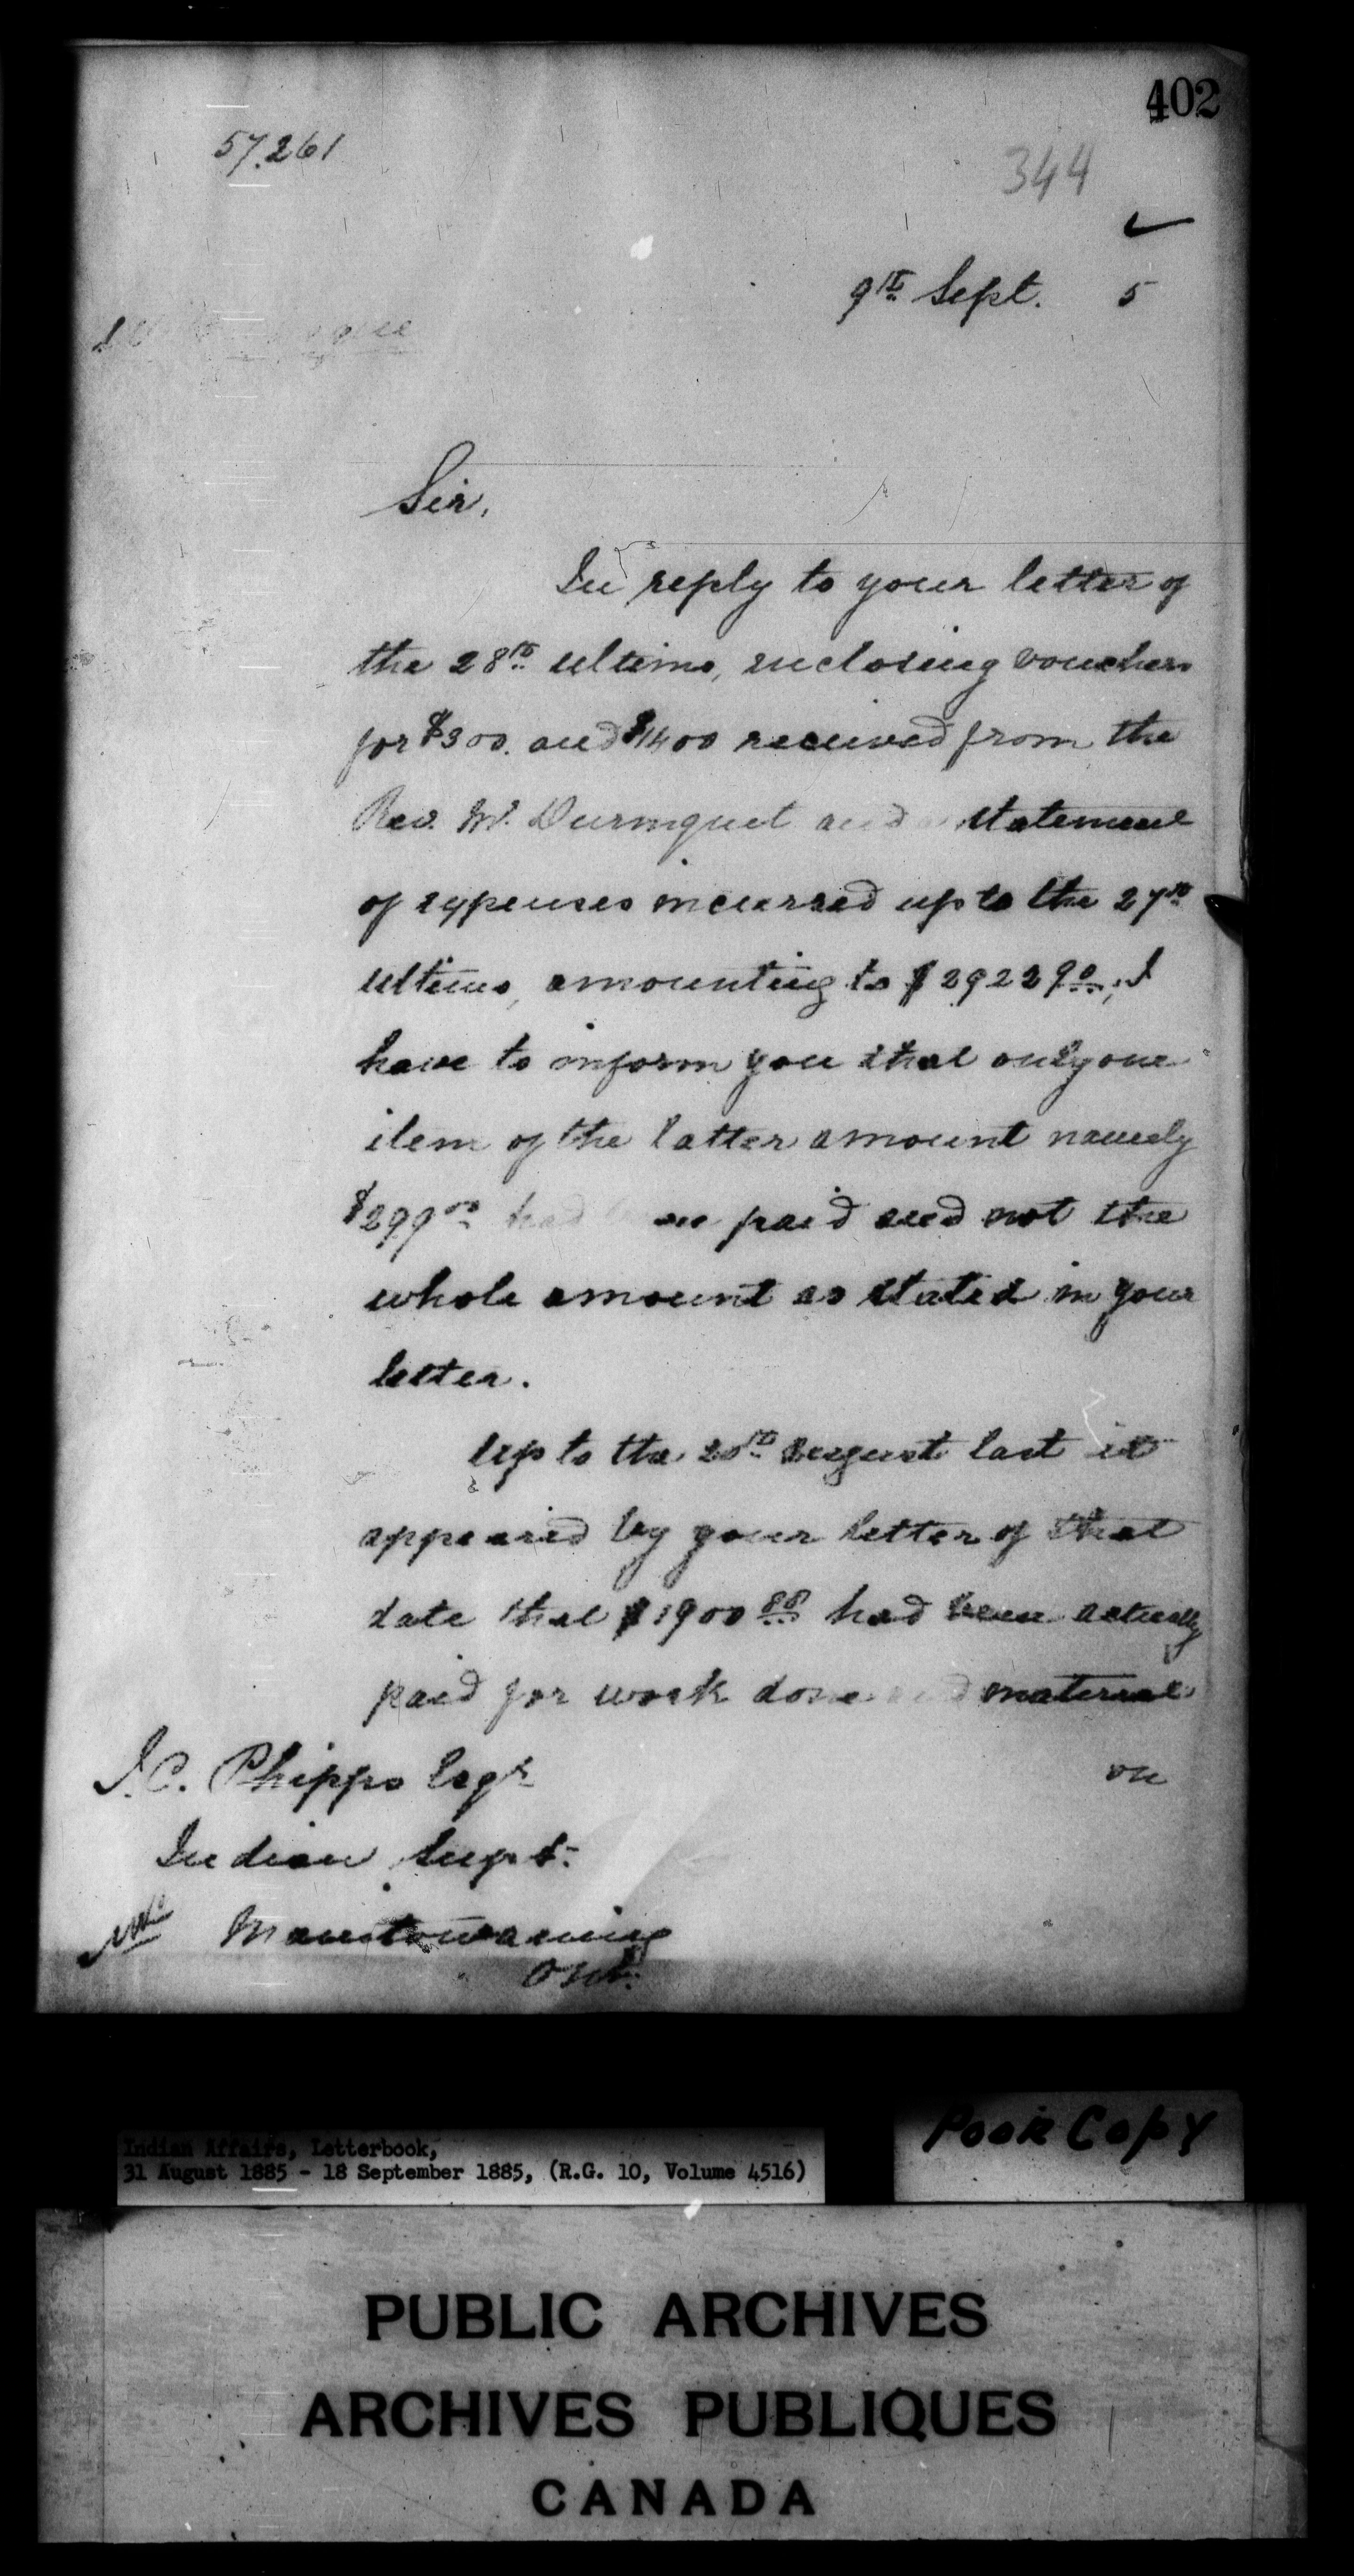 402
57.261
344
9th Sept. 5
Sir,
In reply to your letter of
the 28th ultimo, enclosing vouchers
for $300. and $1400 received from the
Rev. Mr. Duronquet and statement
of expenses incurred up to the 27th
ultimo, amounting to $2922 90; I
have to inform you that only one
item of the latter amount namely
$299 00 had been paid and not the
whole amount as stated in your
letter.
Up to the 20th August last it
appeared by your letter of that
date that $1900 88 had been actually
paid for work done and material
on
J.C. Phipps Esqr
Indian Supt.
Manitowaning
Ont.
Poor Copy
Indian Affairs, Letterbook,
31 August 1885 - 18 September 1885, (R.G. 10, Volume 4516)
PUBLIC ARCHIVES
ARCHIVES PUBLIQUES
CANADA